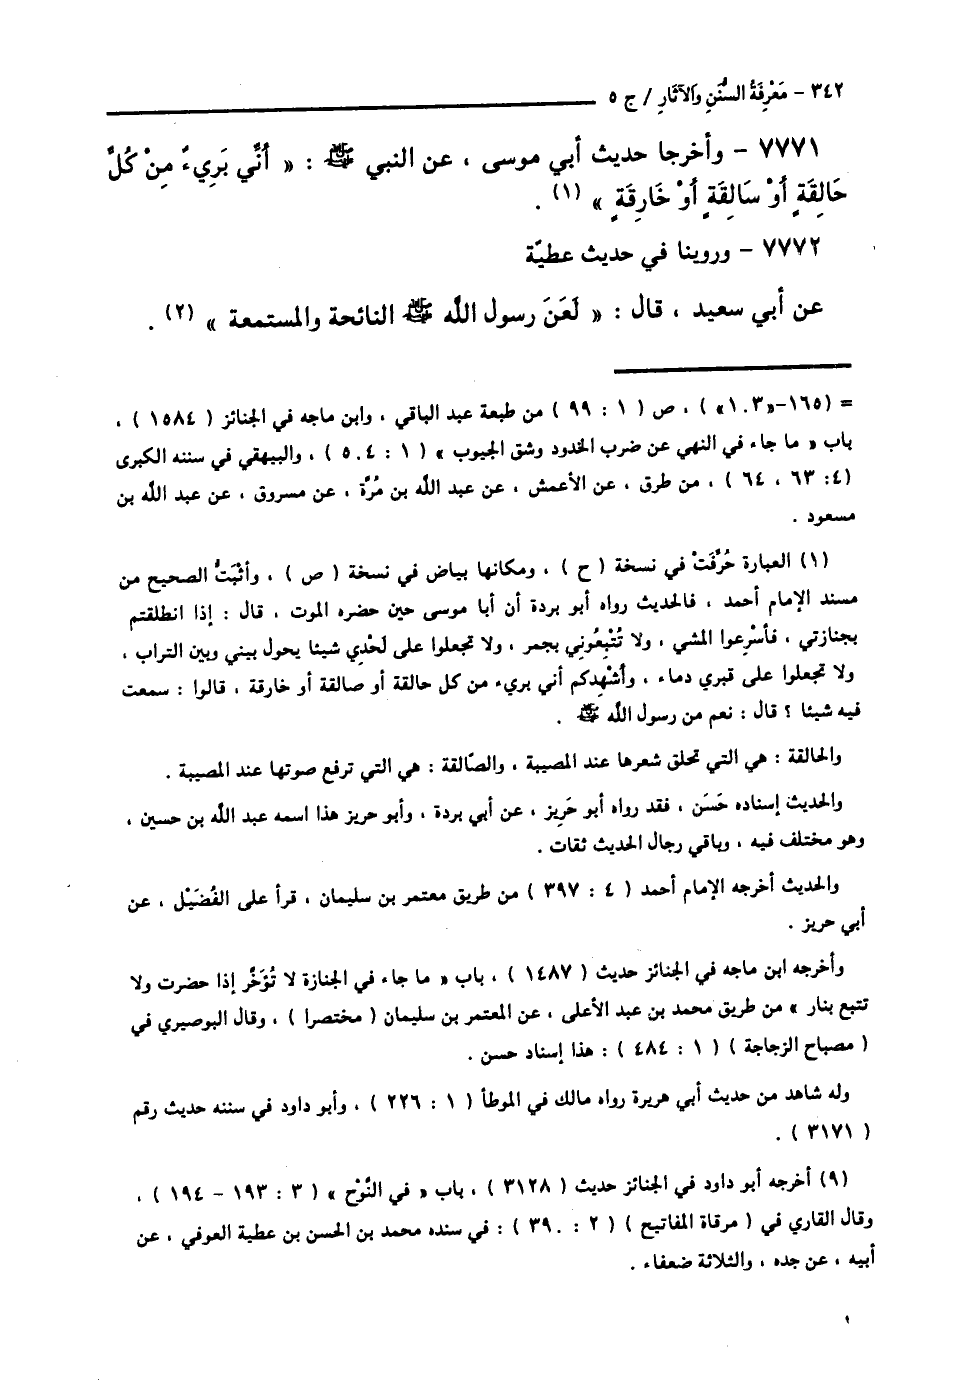 ٣٤٢ - مَعْرِفَةُ السُّنَنِ والآثَارِ / ج ٥
٧٧٧١ - وأخرجا حديث أبي موسى ، عن النبي ﷺ : « أنَّي بَرِيءٌ مِنْ كُلِّ
حَالِقَةٍ أوْ سَالِقَةٍ أوْ خَارِقَةٍ » (١) .
٧٧٧٢ - وروينا في حديث عطيّة
عن أبي سعيد ، قال : « لَعَنَ رسول الله ﷺ النائحة والمستمعة » (٢) .
= (١٦٥-«١٠٣») ، ص ( ١ : ٩٩ ) من طبعة عبد الباقي ، وابن ماجه في الجنائز ( ١٥٨٤ ) ،
باب « ما جاء في النهي عن ضرب الخدود وشق الجيوب » ( ١ : ٥٠٤ ) ، والبيهقي في سننه الكبرى
(٤: ٦٣ ، ٦٤ ) ، من طرق ، عن الأعمش ، عن عبد الله بن مُرَّة ، عن مسروق ، عن عبد الله بن
مسعود .
(١) العبارة حُرِّفَتْ في نسخة ( ح ) ، ومكانها بياض في نسخة ( ص ) ، وأثبَتُّ الصحيح من
مسند الإمام أحمد ، فالحديث رواه أبو بردة أن أبا موسى حين حضره الموت ، قال : إذا انطلقتم
بجنازتي ، فأسْرِعوا المشي ، ولا تُتْبِعُوني بجمر ، ولا تجعلوا على لَحْدِي شيئا يحول بيني وبين التراب ،
ولا تجعلوا على قبري دماء ، وأُشْهِدكم أني بريء من كل حالقة أو صالقة أو خارقة ، قالوا : سمعت
فيه شيئا ؟ قال : نعم من رسول الله ﷺ .
والحالقة : هي التي تحلق شعرها عند المصيبة ، والصّالقة : هي التي ترفع صوتها عند المصيبة .
والحديث إسناده حَسَن ، فقد رواه أبو حَرِيز ، عن أبي بردة ، وأبو حريز هذا اسمه عبد الله بن حسين ،
وهو مختلف فيه ، وباقي رجال الحديث ثقات .
والحديث أخرجه الإمام أحمد ( ٤ : ٣٩٧ ) من طريق معتمر بن سليمان ، قرأ على الفُضَيْل ، عن
أبي حريز .
وأخرجه ابن ماجه في الجنائز حديث ( ١٤٨٧ ) ، باب « ما جاء في الجنازة لا تُؤَخَّرُ إذا حضرت ولا
تتبع بنار » من طريق محمد بن عبد الأعلى ، عن المعتمر بن سليمان ( مختصرا ) ، وقال البوصيري في
( مصباح الزجاجة ) ( ١ : ٤٨٤ ) : هذا إسناد حسن .
وله شاهد من حديث أبي هريرة رواه مالك في الموطأ ( ١ : ٢٢٦ ) ، وأبو داود في سننه حديث رقم
( ٣١٧١ ) .
(٩) أخرجه أبو داود في الجنائز حديث ( ٣١٢٨ ) ، باب « في النَّوْح » ( ٣ : ١٩٣ - ١٩٤ ) ،
وقال القاري في ( مرقاة المفاتيح ) ( ٢ : ٣٩٠ ) : في سنده محمد بن الحسن بن عطية العوفي ، عن
أبيه ، عن جده ، والثلاثة ضعفاء .